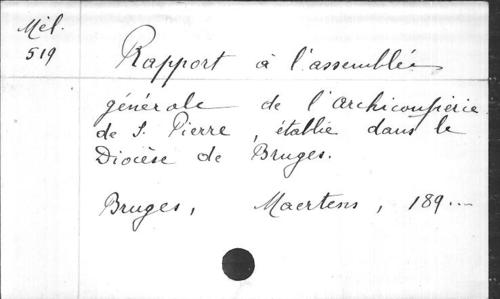 Mél.
519
Rapport à l'assemblée
générale de l'archiconfrérie
de S. Pierre, établie dans le
Diocèse de Bruges.
Bruges, Maertens, 189...